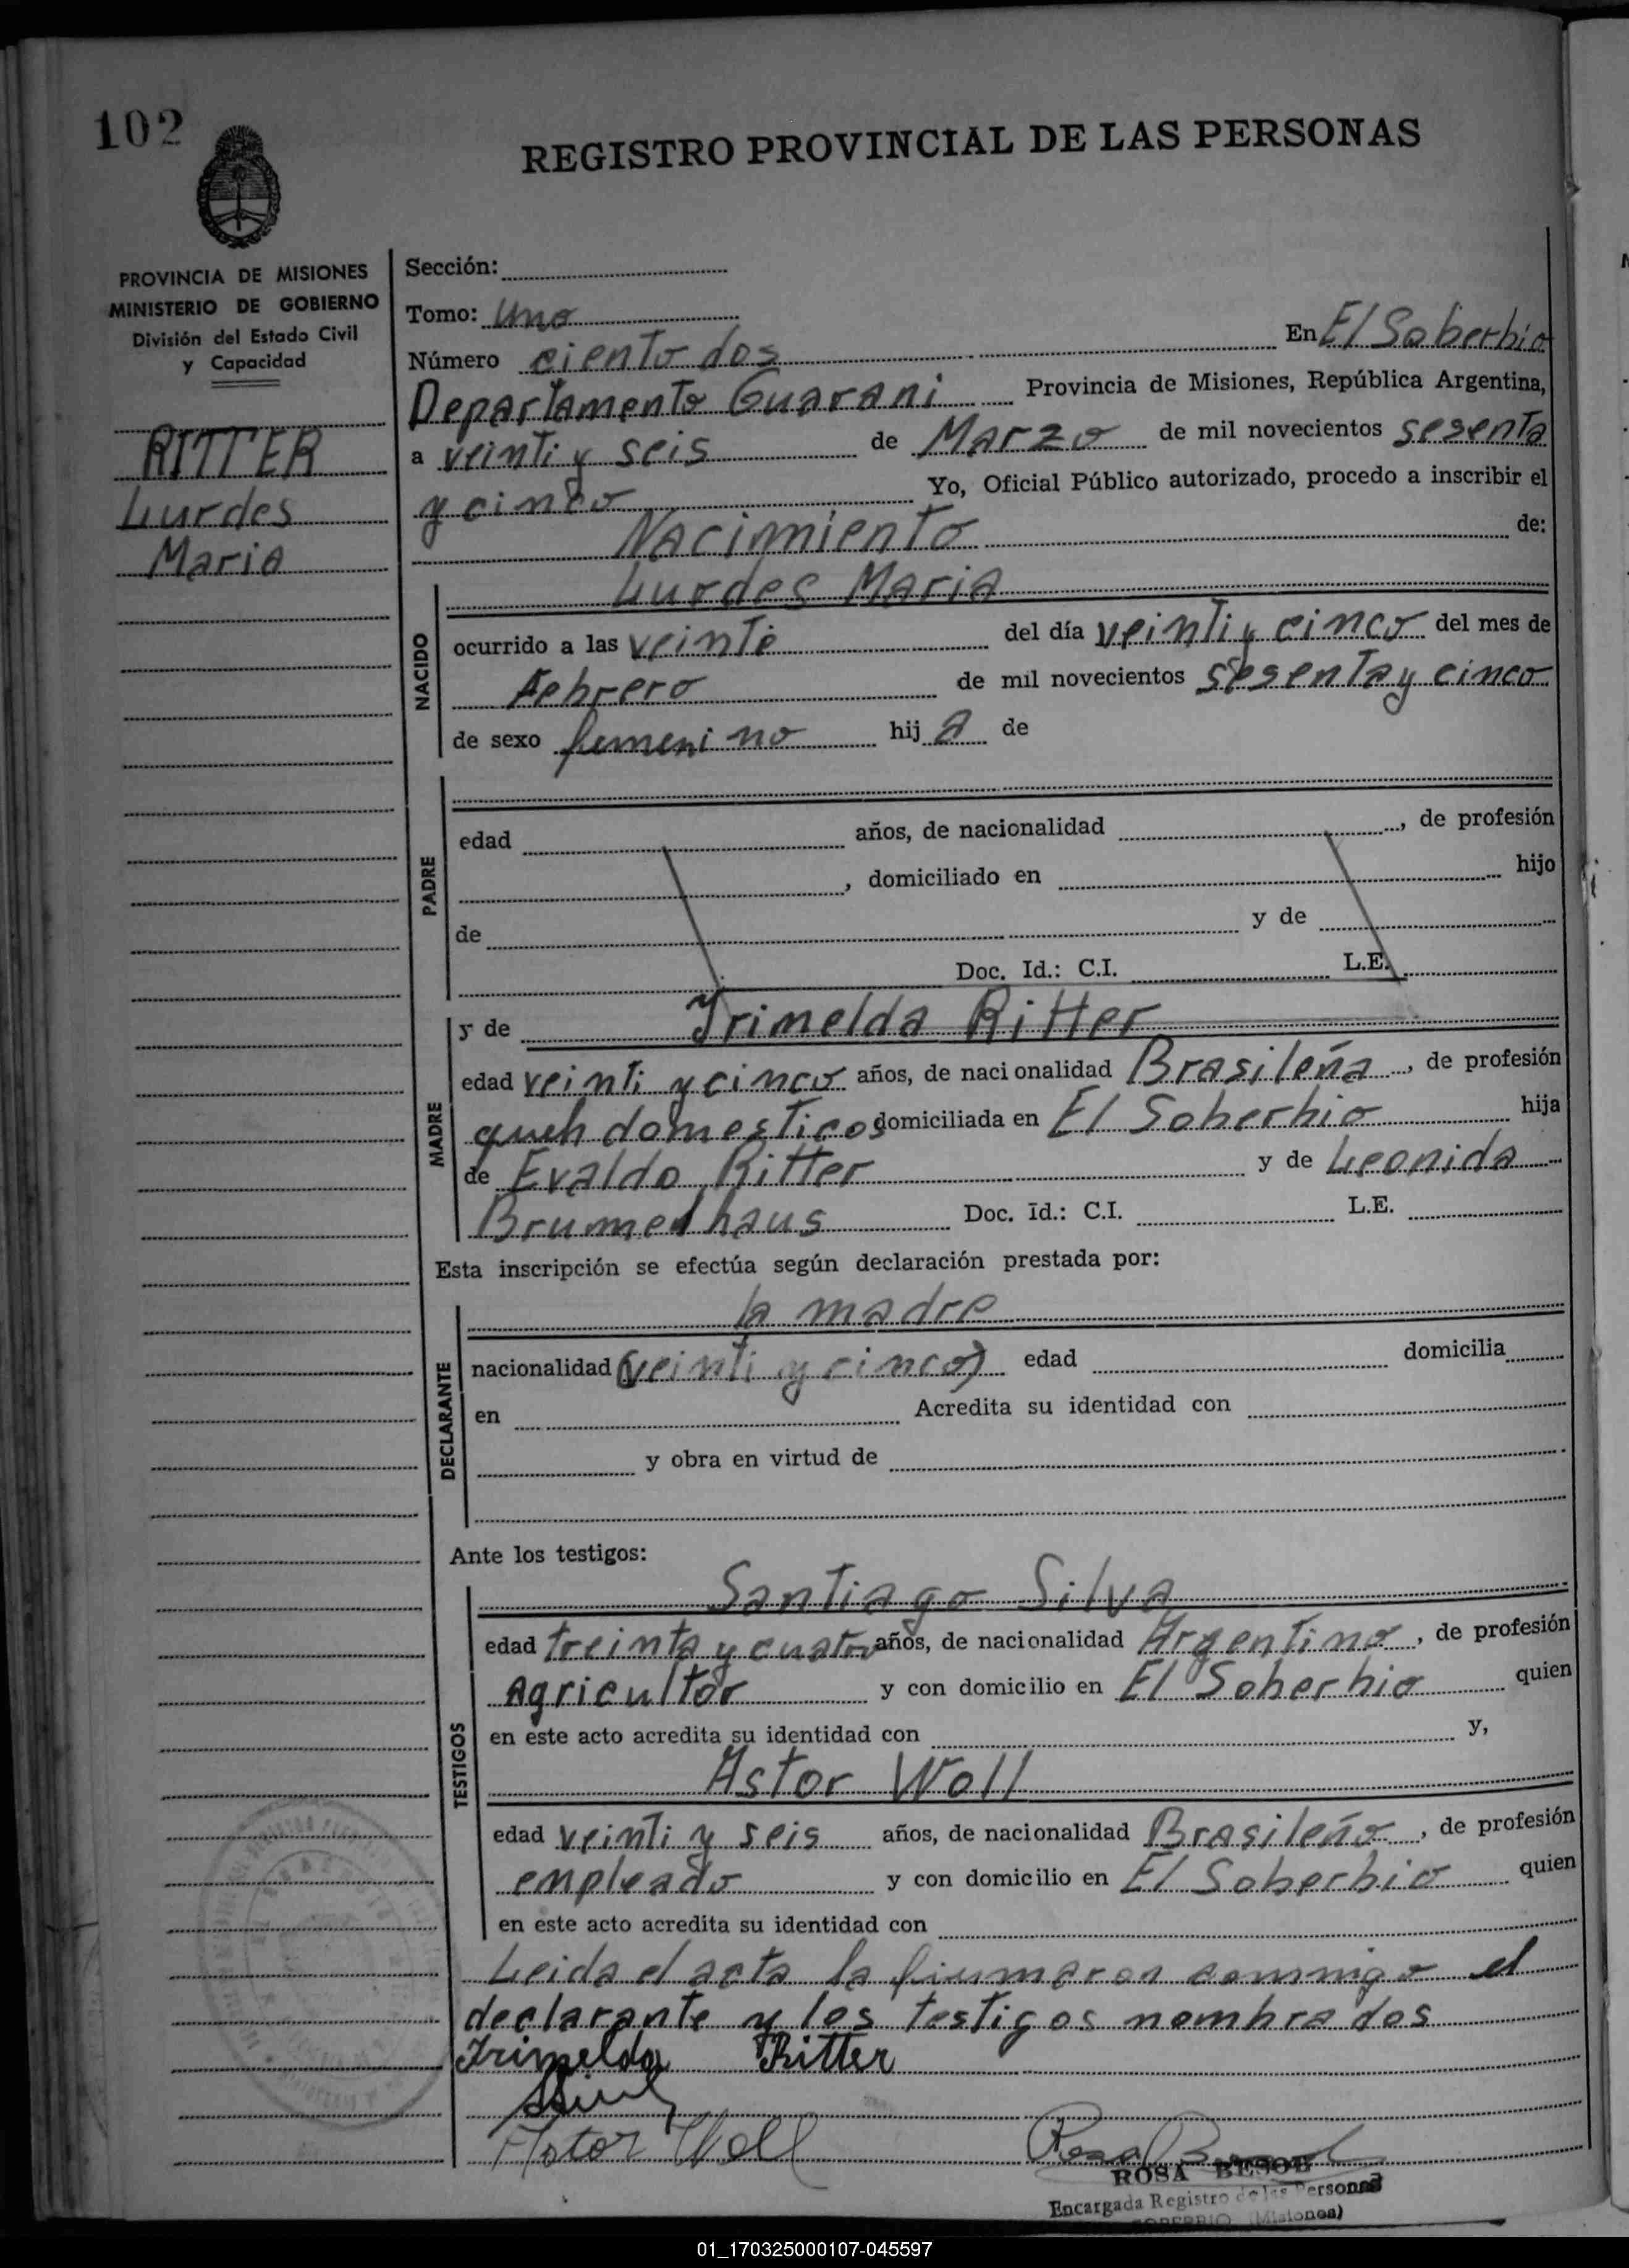 102
REGISTRO PROVINCIAL DE LAS PERSONAS
PROVINCIA DE MISIONES
MINISTERIO DE GOBIERNO
División del Estado Civil
y Capacidad
RITTER
Lurdes
Maria
Sección:
Tomo: Uno
Número ciento dos En El Soberbio
Departamento Guarani Provincia de Misiones, República Argentina,
a veinti y seis de Marzo de mil novecientos sesenta
y cinco Yo, Oficial Público autorizado, procedo a inscribir el
Nacimiento de:
NACIDO
Lurdes Maria
ocurrido a las veinte del día veinti y cinco del mes de
Febrero de mil novecientos sesenta y cinco
de sexo femenino hij a de
PADRE
edad años, de nacionalidad , de profesión
, domiciliado en hijo
de y de
Doc. Id.: C.I. L.E.
MADRE
y de Irimelda Ritter
edad veinti y cinco años, de nacionalidad Brasileña , de profesión
queh domesticos domiciliada en El Soberbio hija
de Evaldo Ritter y de Leonida
Brumelhaus Doc. Id.: C.I. L.E.
Esta inscripción se efectúa según declaración prestada por:
DECLARANTE
la madre
nacionalidad (veinti y cinco) edad domicilia
en Acredita su identidad con
y obra en virtud de
Ante los testigos:
TESTIGOS
Santiago Silva
edad treinta y cuatro años, de nacionalidad Argentino , de profesión
Agricultor y con domicilio en El Soberbio quien
en este acto acredita su identidad con y,
Astor Woll
edad veinti y seis años, de nacionalidad Brasileño , de profesión
empleado y con domicilio en El Soberbio quien
en este acto acredita su identidad con
Leida el acta la firmaron conmigo el
declarante y los testigos nombrados
Irimelda Ritter
Astor Woll
ROSA BESOE
Encargada Registro de las Personas
SOBERBIO (Misiones)
01_170325000107-045597